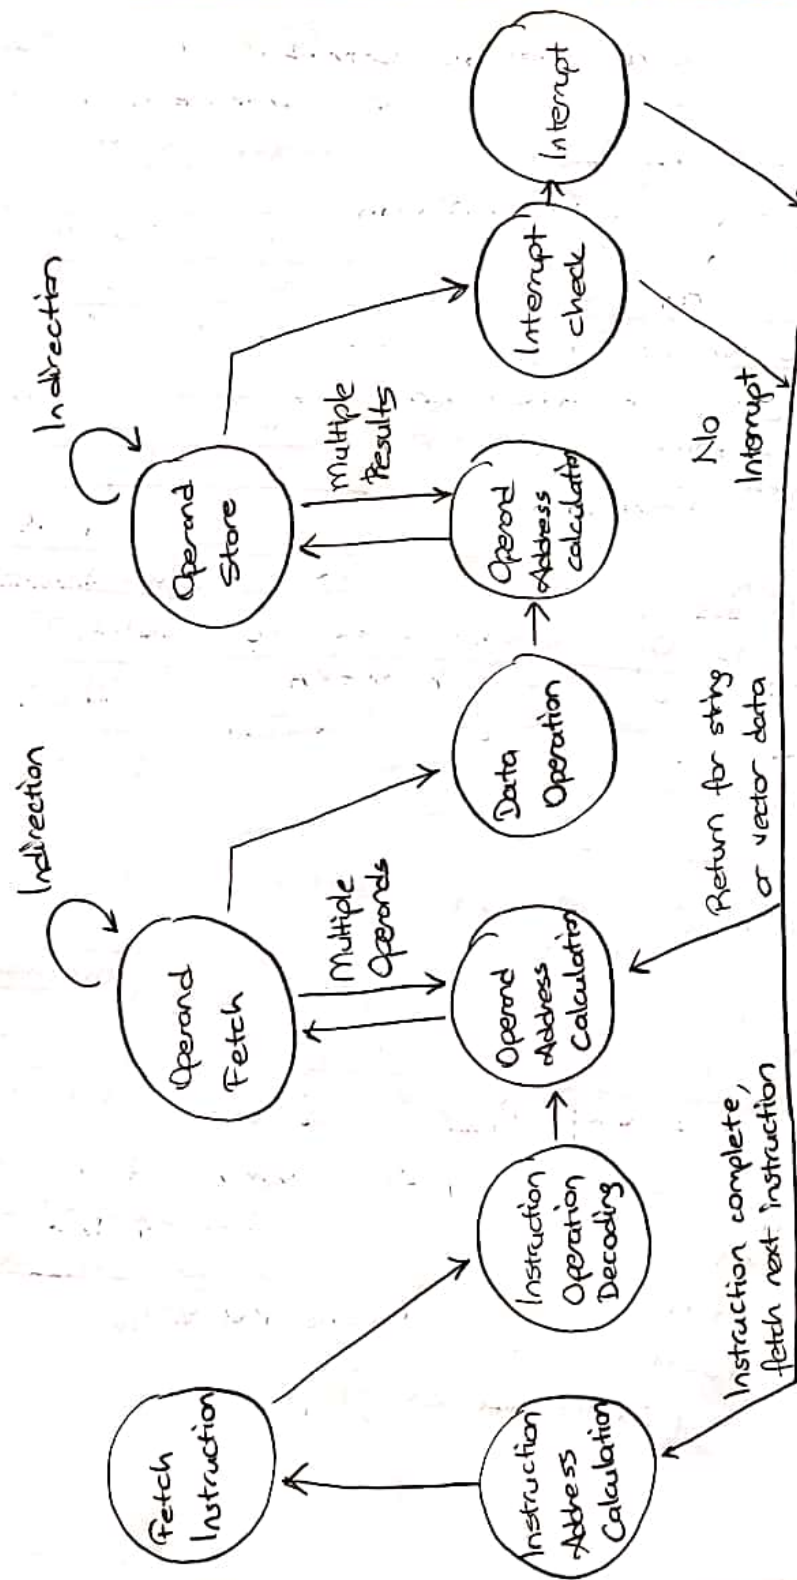 Fetch
Instruction
Instruction
Address
Calculation
Instruction
Operation
Decoding
Operand
Fetch
Indirection
Multiple
Operands
Operand
Address
Calculation
Data
Operation
Operand
Store
Indirection
Multiple
Results
Operand
Address
calculation
Interrupt
check
Interrupt
No
Interrupt
Return for string
or vector data
Instruction complete,
fetch next instruction